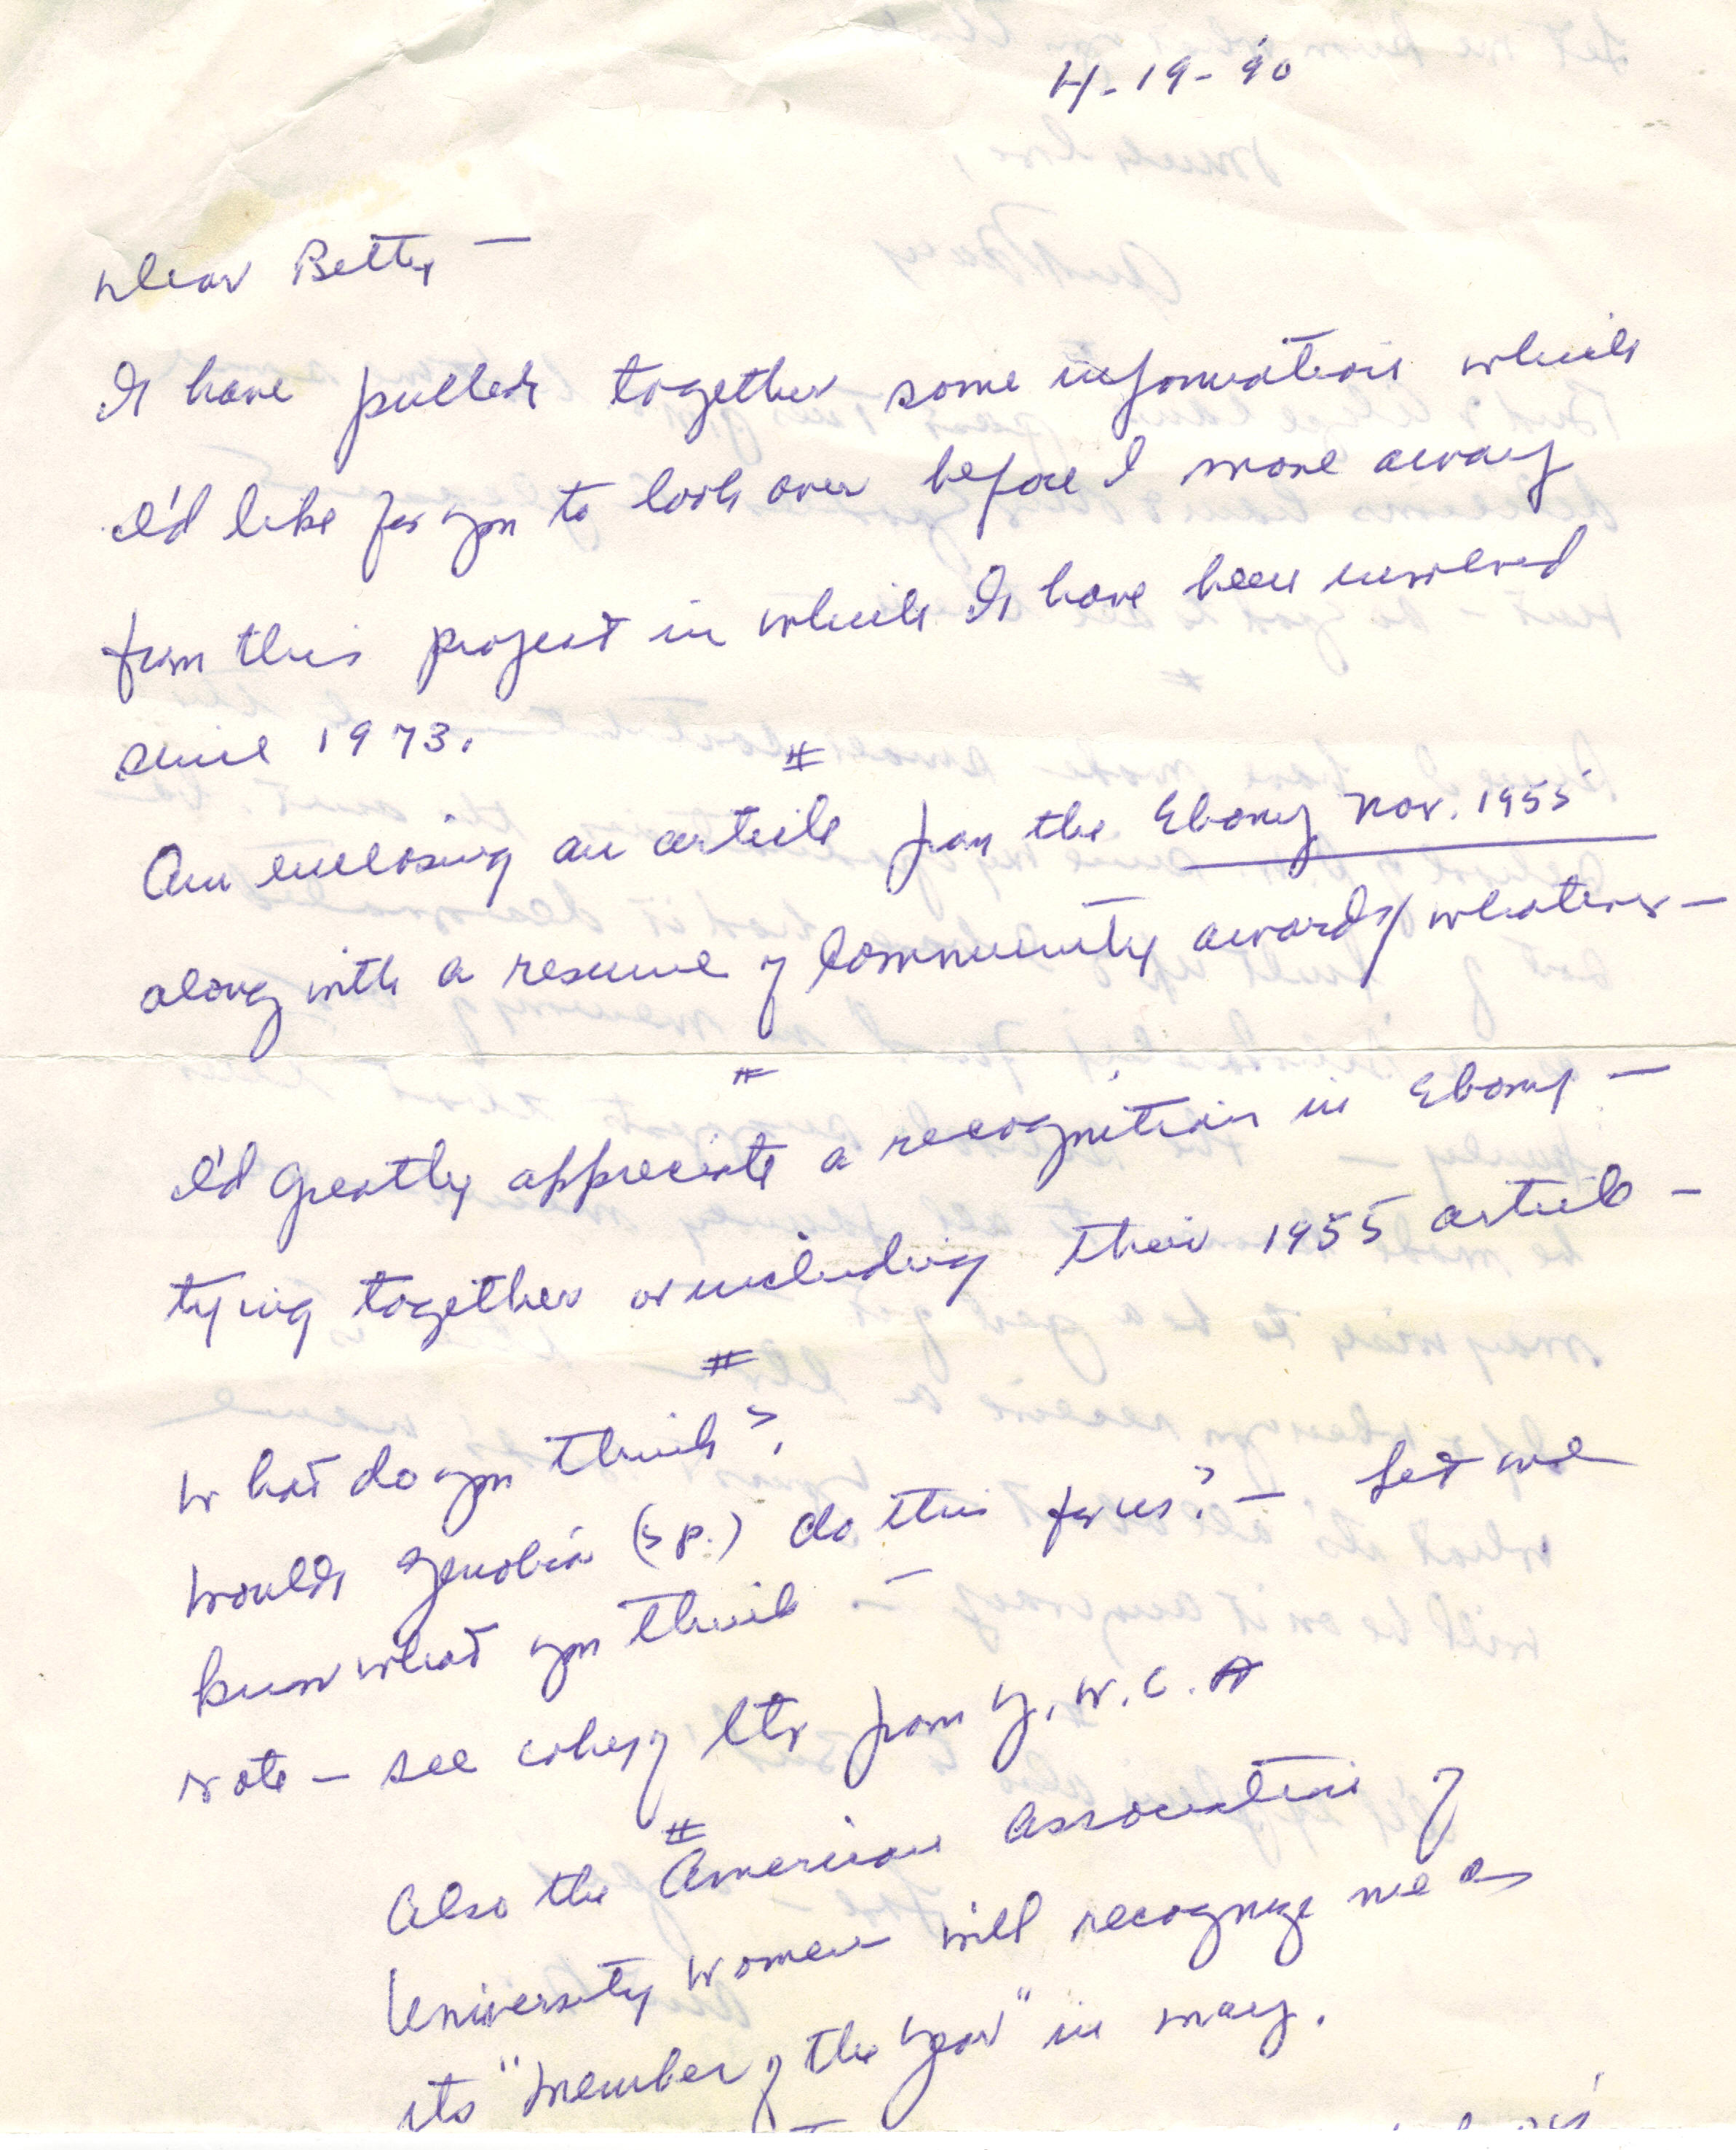 4-19-90
Dear Betty —
I have pulled together some information which
I'd like for you to look over before I move away
from this project in which I have been involved
since 1973.
#
Am enclosing an article from the Ebony Nov. 1955
along with a resume of Community awards/whatever —
#
I'd greatly appreciate a recognition in Ebony —
tying together or including their 1955 article —
#
What do you think?
Would Zenobia (sp.) do this for us? — Let me
know what you think —
Note — see copy of ltr from Y.W.C.A
#
Also the American Association of
University Women will recognize me as
its "Member of the Year" in May.